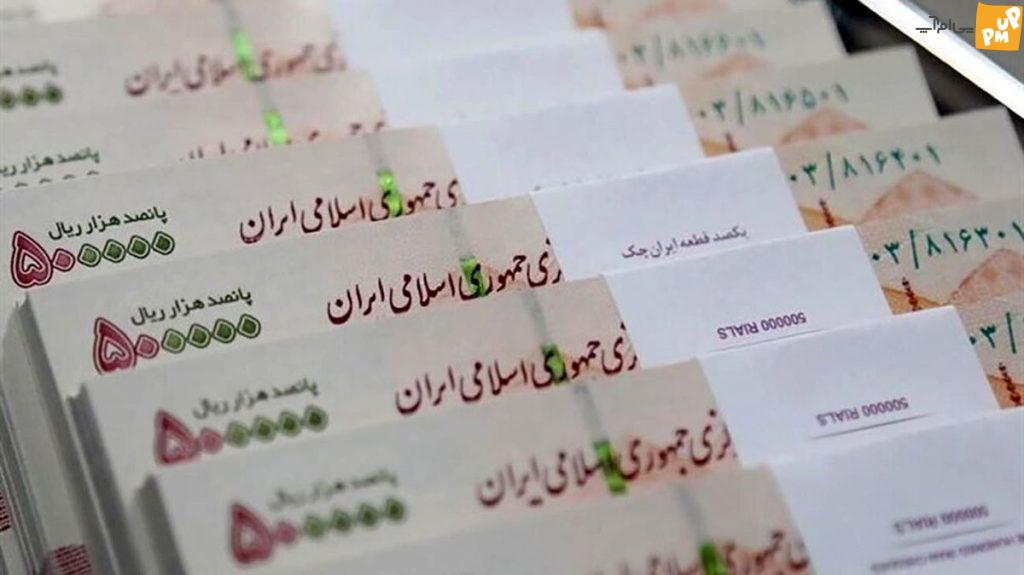 UP
PM
پی‌ام‌آپ
پانصد هزار ریال
جمهوری اسلامی ایران
۰۳/۸۱۶۶۰۱
پانصد هزار ریال
۰۳/۸۱۶۵۰۱
پانصد هزار ریال
۵۰۰۰۰۰
جمهوری اسلامی ایران
۰۳/۸۱۶۴۰۱
پانصد هزار ریال
۵۰۰۰۰۰
جمهوری اسلامی ایران
یکصد قطعه ایران چک
۰۳/۸۱۶۳۰۱
پانصد هزار ریال
۵۰۰۰۰۰
جمهوری اسلامی ایران
500000 RIALS
۰۳/
پانصد هزار ریال
۵۰۰۰۰۰
جمهوری اسلامی ایران
500000 RIALS
500000 RIALS